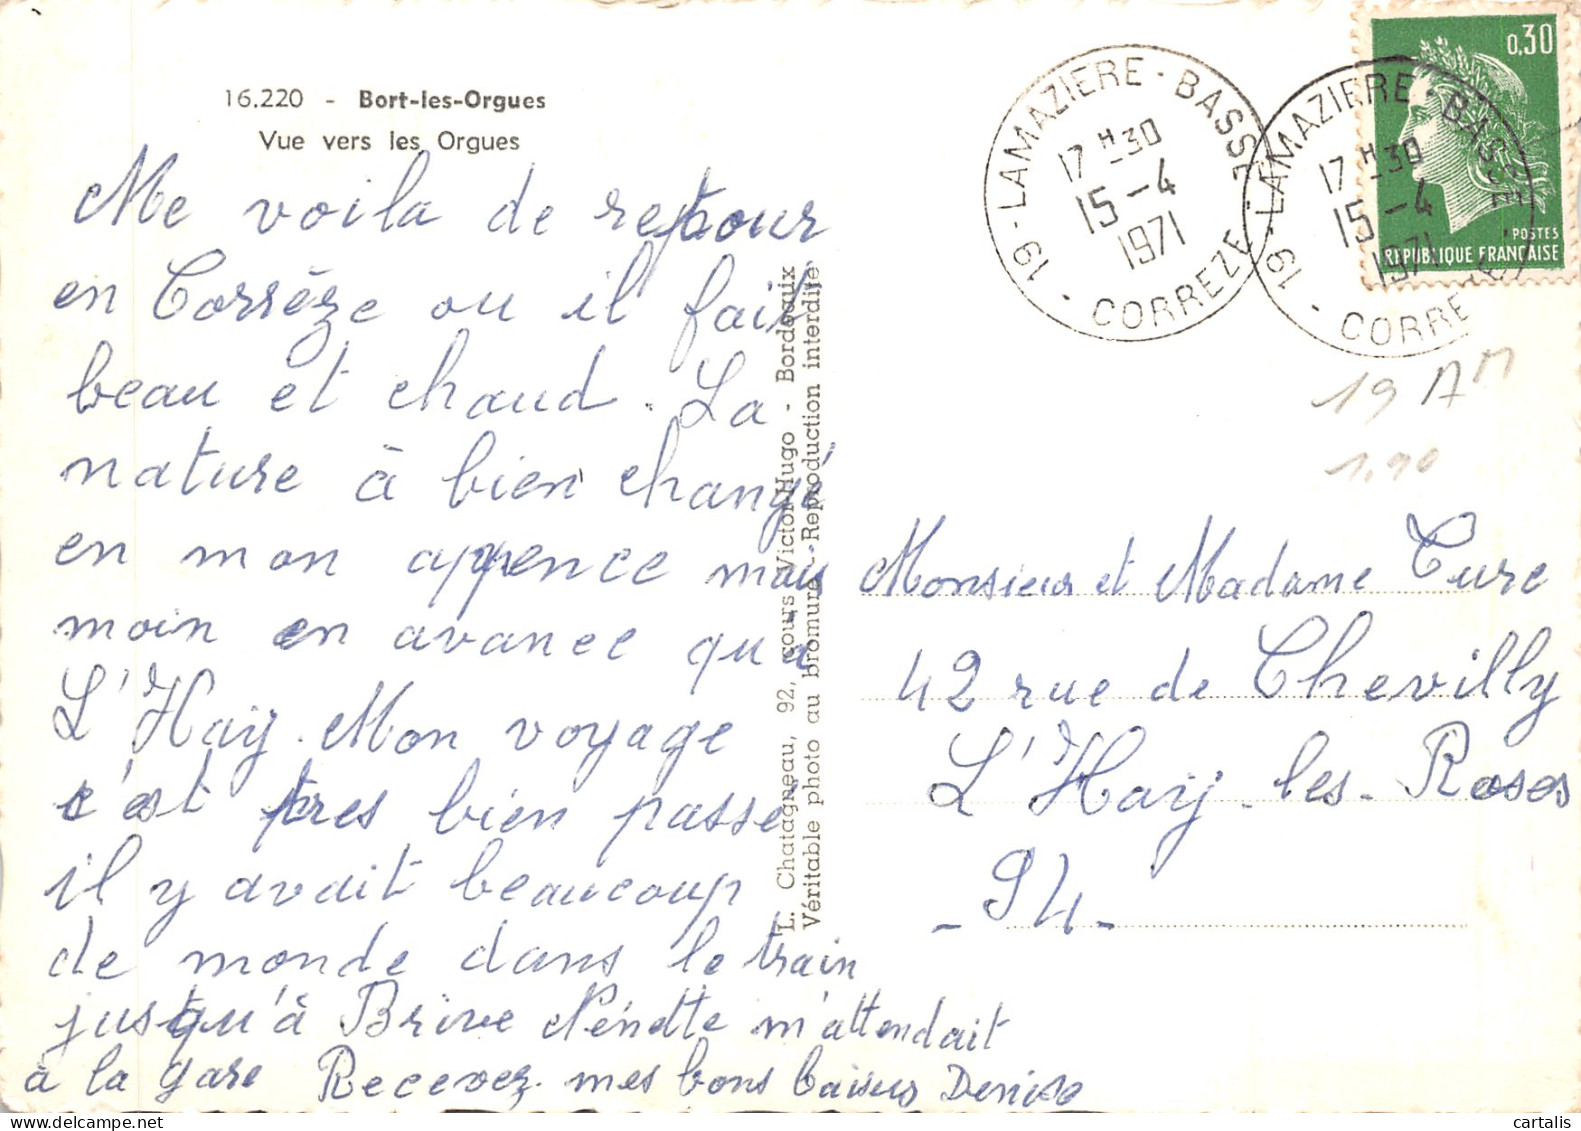 16.220 - Bort-les-Orgues
Vue vers les Orgues
Me voila de retour
en Corrèze ou il fait
beau et chaud. La
nature à bien changé
en mon appence mais
moin en avance qu'à
L'Haÿ. Mon voyage
c'est tres bien passé
il y avait beaucoup
de monde dans le train
jusqu'à Brive Nénette m'attendait
à la gare Recevez mes bons baisers Denise
L. Chatagneau, 92, cours Victor-Hugo - Bordeaux
Véritable photo au bromure - Reproduction interdite
19 - LAMAZIERE - BASSE
17 H 30
15 - 4
1971
CORREZE
19 - LAMAZIERE - BASSE
17 H 30
15 - 4
1971
CORREZE
0,30
POSTES
REPUBLIQUE FRANÇAISE
19 AM
1,90
Monsieur et Madame Cure
42 rue de Chevilly
L'Haÿ-les-Roses
- 94 -
cartalis